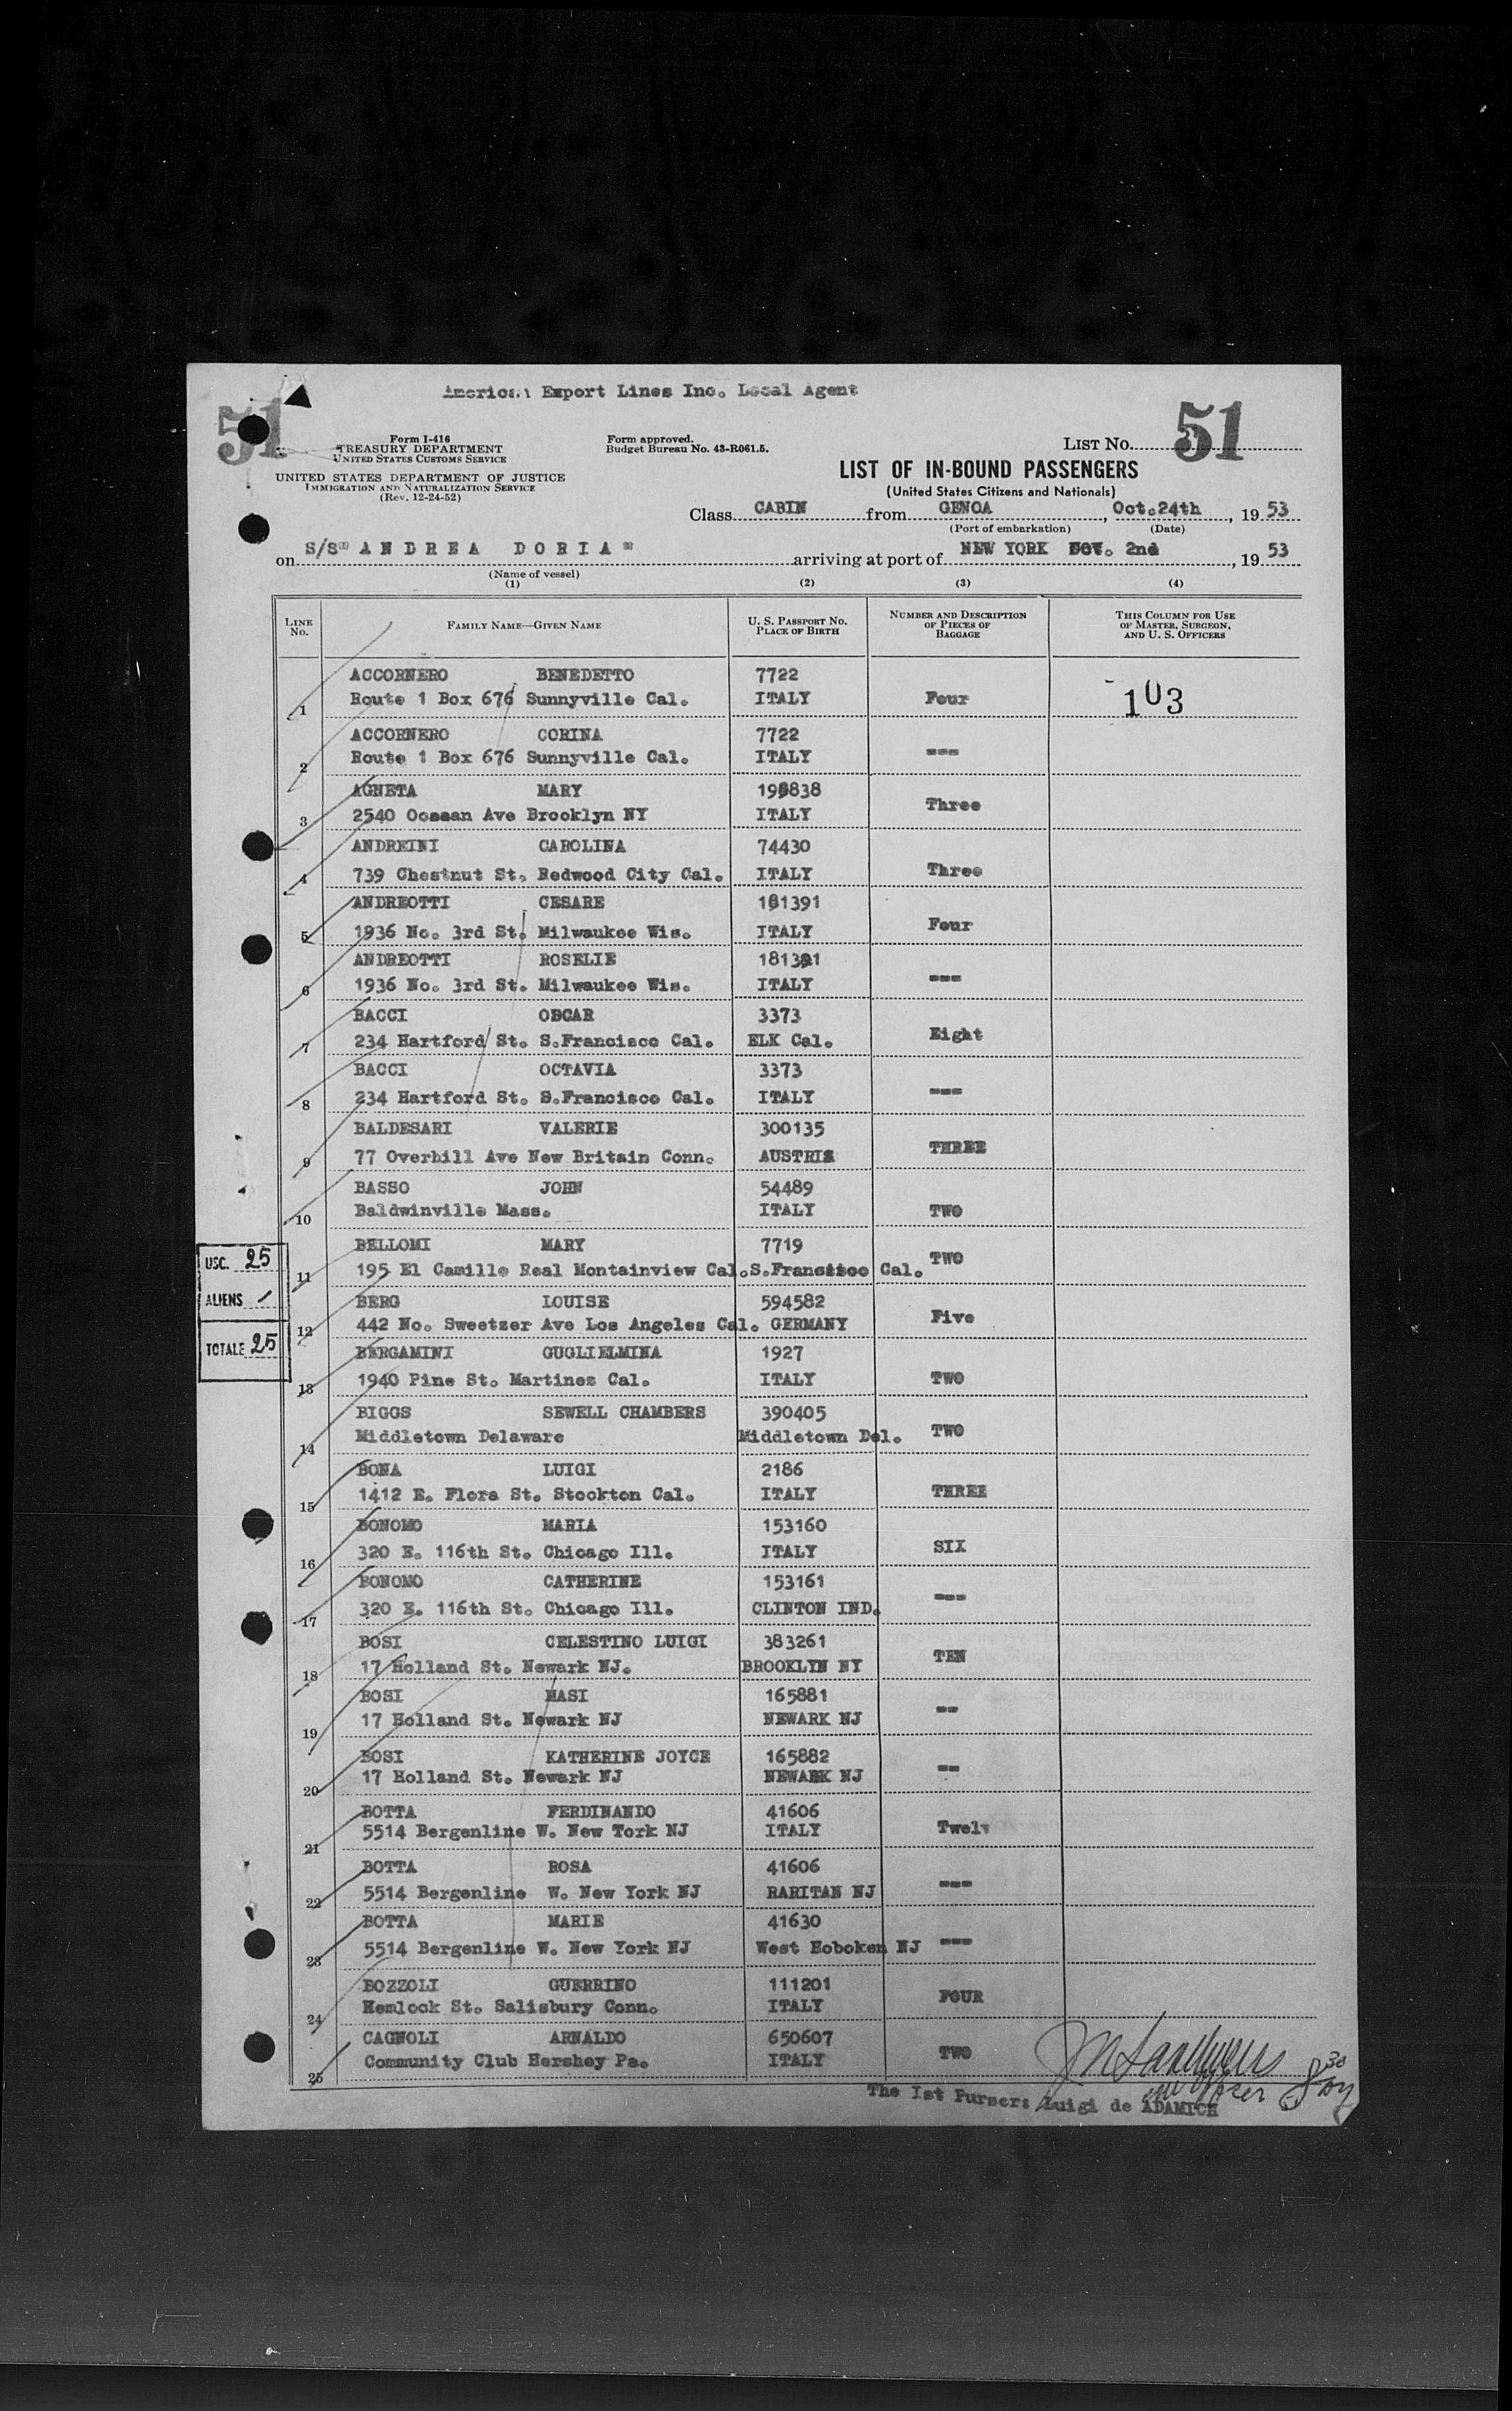 American Export Lines Inc. Local Agent
51
51
Form I-416
TREASURY DEPARTMENT
UNITED STATES CUSTOMS SERVICE
UNITED STATES DEPARTMENT OF JUSTICE
IMMIGRATION AND NATURALIZATION SERVICE
(Rev. 12-24-52)
Form approved.
Budget Bureau No. 43-R061.5.
LIST No.
LIST OF IN-BOUND PASSENGERS
(United States Citizens and Nationals)
Class CABIN from GENOA, Oct.24th, 19 53
(Port of embarkation) (Date)
on S/S" A N D R E A D O R I A " arriving at port of NEW YORK 2nd, 19 53
(Name of vessel)
(1) (2) (3) (4)
LINE No. FAMILY NAME—GIVEN NAME U. S. PASSPORT No. PLACE OF BIRTH NUMBER AND DESCRIPTION OF PIECES OF BAGGAGE THIS COLUMN FOR USE OF MASTER, SURGEON, AND U. S. OFFICERS
ACCORNERO BENEDETTO 7722
1 Route 1 Box 676 Sunnyville Cal. ITALY Four 103
ACCORNERO CORINA 7722
2 Route 1 Box 676 Sunnyville Cal. ITALY ---
AGNETA MARY
3 2540 Ave Brooklyn NY ITALY Three
ANDREINI CAROLINA 74430
4 739 Chestnut St. Redwood City Cal. ITALY Three
ANDREOTTI CESARE 181391
5 1936 No. 3rd St. Milwaukee Wis. ITALY Four
ANDREOTTI ROSELIE 181391
6 1936 No. 3rd St. Milwaukee Wis. ITALY ---
BACCI OSCAR 3373
7 234 Hartford St. S.Francisco Cal. ELK Cal. Eight
BACCI OCTAVIA 3373
8 234 Hartford St. S.Francisco Cal. ITALY ---
BALDESARI VALERIE 300135
9 77 Overhill Ave New Britain Conn. AUSTRIA THREE
BASSO JOHN 54489
10 Baldwinville Mass. ITALY TWO
BELLOMI MARY 7719
11 195 El Camille Real Montainview Cal. S.Francisco Cal. TWO
BERG LOUISE 594582
12 442 No. Sweetzer Ave Los Angeles Cal. GERMANY Five
BERGAMINI GUGLIELMINA 1927
13 1940 Pine St. Martinez Cal. ITALY TWO
BIGGS SEWELL CHAMBERS 390405
14 Middletown Delaware Middletown Del. TWO
BONA LUIGI 2186
15 1412 E. Flora St. Stockton Cal. ITALY THREE
BONOMO MARIA 153160
16 320 E. 116th St. Chicago Ill. ITALY SIX
BONOMO CATHERINE 153161
17 320 E. 116th St. Chicago Ill. CLINTON IND. ---
BOSI CELESTINO LUIGI 383261
18 17 Holland St. Newark NJ. BROOKLYN NY TEN
BOSI MASI 165881
19 17 Holland St. Newark NJ NEWARK NJ --
BOSI KATHERINE JOYCE 165882
20 17 Holland St. Newark NJ NEWARK NJ --
BOTTA FERDINANDO 41606
21 5514 Bergenline W. New Tork NJ ITALY Twelv
BOTTA ROSA 41606
22 5514 Bergenline W. New York NJ RARITAN NJ ---
BOTTA MARIE 41630
23 5514 Bergenline W. New York NJ West Hoboken NJ ---
BOZZOLI GUERRINO 111201
24 Hemlock St. Salisbury Conn. ITALY FOUR
CAGNOLI ARNALDO 650607
25 Community Club Hershey Pa. ITALY TWO
USC. 25
ALIENS /
TOTALE 25
The 1st Pursers Luigi de ADAMICH